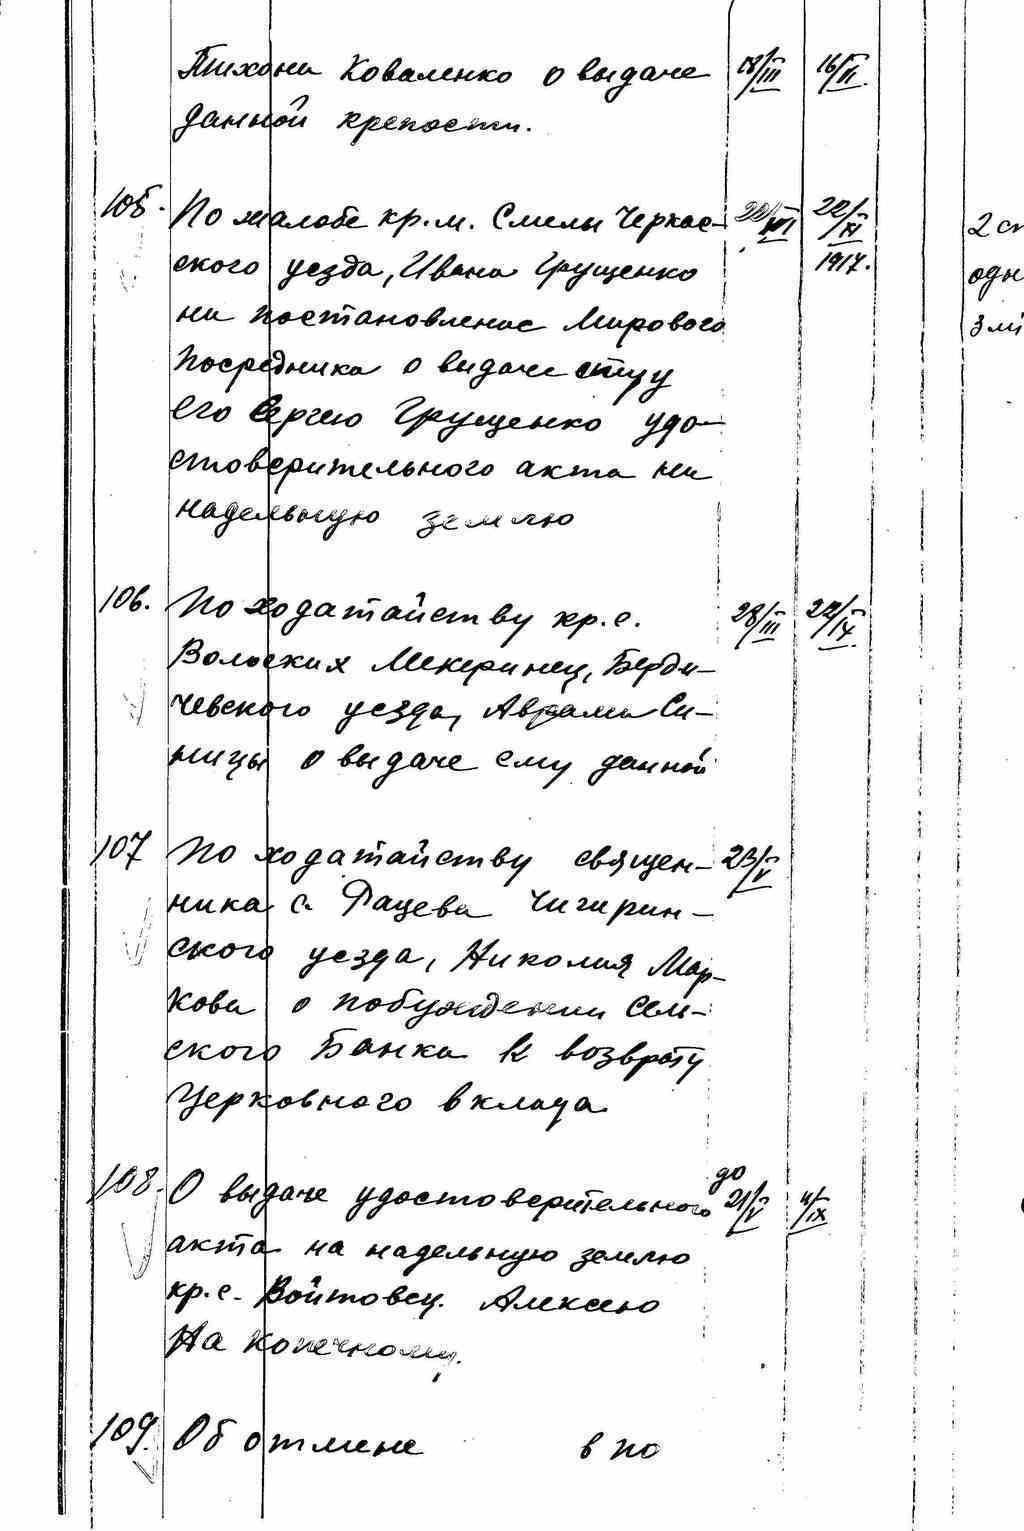 Тихона Коваленко о выдаче 18/III 16/II.
данной крепости.
105. По жалобе кр. м. Смелы Черкас- 22/XI
ского уезда, Ивана Грущенко 1917.
на постановление Мирового
Посредника о выдаче отцу
его Сергею Грущенко удо-
стоверительного акта на
надельную землю
2 ст
одн
106. По ходатайству кр. с. 28/III 22/IX.
Вольских Мекеринец, Берди-
чевского уезда, Аврама Си-
ницы о выдаче ему данной
107 По ходатайству священ- 23/V
ника с. Рацева Чигирин-
ского уезда, Николая Мар-
кова о побуждении Сель-
ского Банка к возврату
Церковного вклада
108. О выдаче удостоверительного до 21/V 4/IX
акта на надельную землю
кр. с. Войтовец. Алексею
На конечному.
109. Об отмене в по